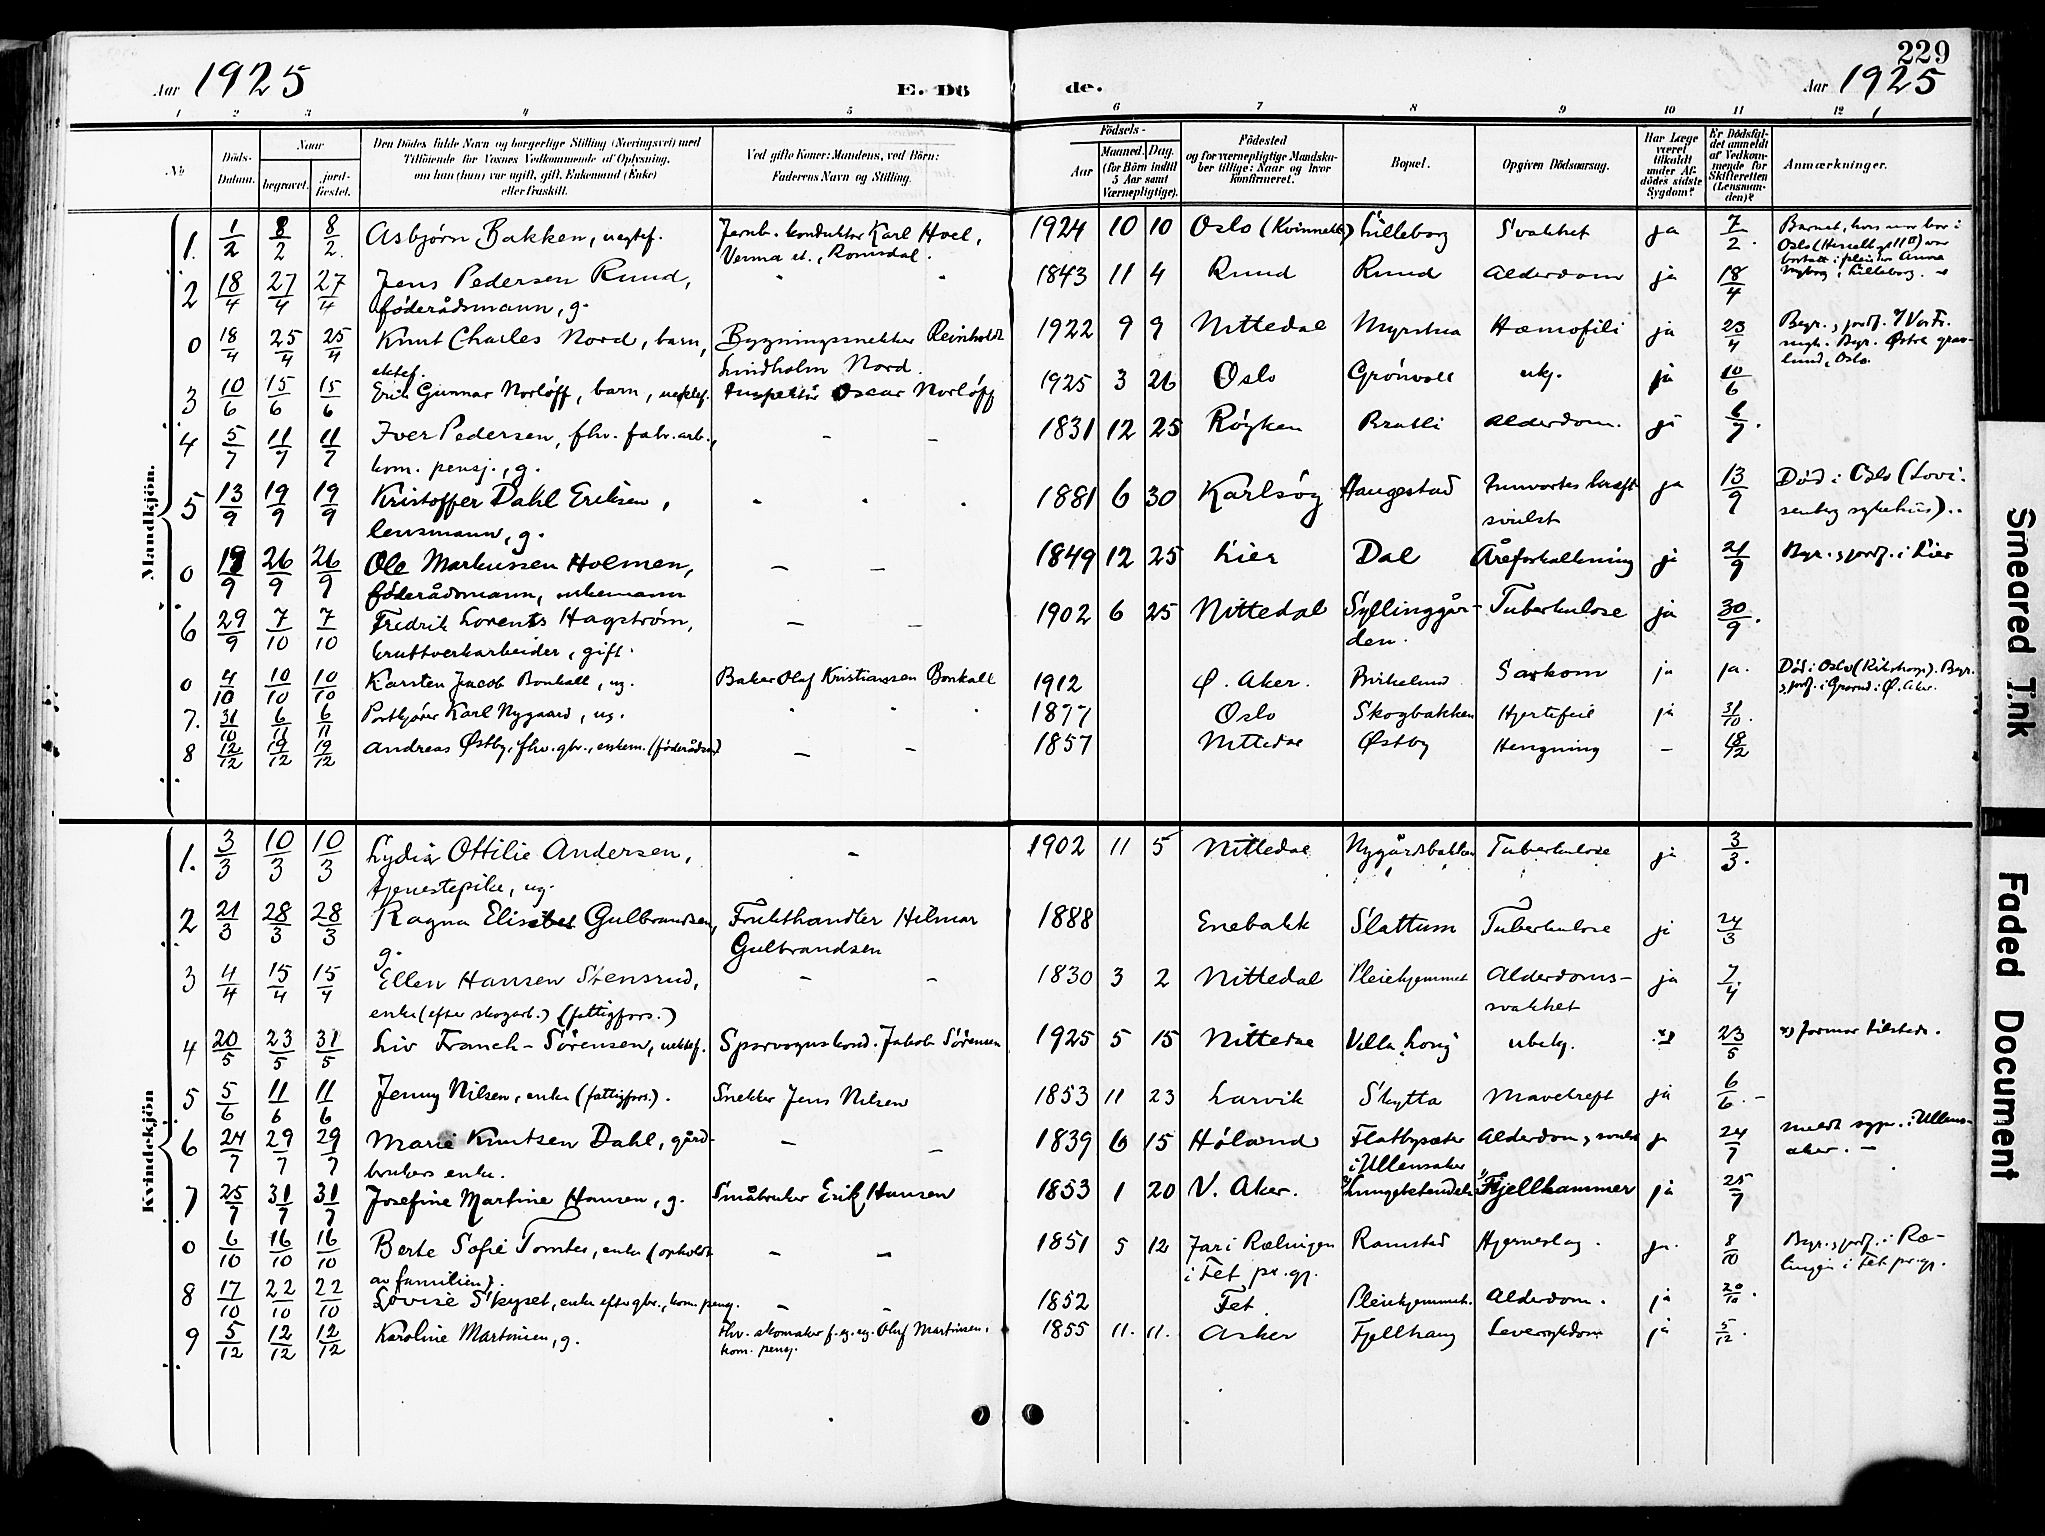 229
Aar 1925
E. Dö
de.
Aar 1925
1 2 3 4 5 6 7 8 9 10 11 12
No
Döds-Datum.
Naar
begravet.
jord-fæstet.
Den Dödes fulde Navn og borgerlige Stilling (Næringsvei) med
Tilföiende for Voxnes Vedkommende af Oplysning,
om han (hun) var ugift, gift, Enkemand (Enke)
eller fraskilt.
Ved gifte Koner: Mandens, ved Börn:
Faderens Navn og Stilling.
Födsels-
Aar
Maaned. Dag.
(for Börn indtil
5 Aar samt
Værnepligtige).
Födested
og for værnepligtige Mandska-
ber tillige: Naar og hvor
konfirmeret.
Bopæl.
Opgiven Dödsaarsag.
Har Læge
været
tilkaldt
under Af-
dödes sidste
Sygdom?
Er Dödsfal-
det anmeldt
af Vedkom-
mende for
Skifteretten
(Lensman-
den)?
Anmærkninger.
Mandkjön.
1. 1/2 8/2 8/2 Asbjørn Bakken, uegtef. Jernb. konduktør Karl Hoel, 1924 10 10 Oslo (Kvinnekl) Lilleborg Svakhet ja 7/2. Barnet, hvis mor bor i
Verma st., Romsdal. Oslo
bortsatt i pleie hos Anna
Nyborg, Lilleborg.
2 18/4 27/4 27/4 Jens Pedersen Rund, 1843 11 4 Rund Rund Alderdom ja 18/4
føderådsmann, g.
0 18/4 25/4 25/4 Knut Charles Nord, barn, Bygningssnekker Reinholdt 1922 9 9 Nittedal Myrstua Hæmofili ja 23/4 Begr. & jordf. Vor Fr.
ektef. Lindholm Nord. Begr. Østre grav-
lund, Oslo.
3 10/6 15/6 15/6 Erik Gunnar Norløff, barn, uektef. Inspektør Oscar Norløff 1925 3 26 Oslo Grønvoll ukj. ja 10/6
4 5/7 11/7 11/7 Iver Pedersen, fhv. fabr. arb., – – 1831 12 25 Røyken Bratli Alderdom. ja 6/7.
kom. pensj., g.
5 13/9 19/9 19/9 Kristoffer Dahl Eriksen, 1881 6 30 Karlsøy Haugestad Innvortes kreft ja 13/9 Død i Oslo (Lovi-
lensmann, g. svulst senberg sykehus).
0 19/9 26/9 26/9 Ole Markussen Holmen, – – 1849 12 25 Lier Dal Åreforkalkning ja 21/9 Begr. & jordf. i Lier
føderådsmann, enkemann
6 29/9 7/10 7/10 Fredrik Lorents Hagstrøm, – – 1902 6 25 Nittedal Syllinggår- Tuberkulose ja 30/9.
kruttverkarbeider, gift. den.
0 4/10 10/10 10/10 Karsten Jacob Bonkall, ug. Baker Olaf Kristiansen Bonkall 1912 Ø. Aker. Birkelund Sarkom ja ja. Død i Oslo (Rikshosp). Begr.
& jordf. i Grorud i Ø. Aker.
7. 31/10 6/11 6/11 Postkjører Karl Nygaard, ug. 1877 Oslo Skogbakken Hjertefeil ja 31/10.
8 12/12 19/12 19/12 Andreas Østby, fhv. gbr., enkem. (føderådsm) – – 1857 Nittedal Østby Hengning – 18/12
Kvindekjön
1. 3/3 10/3 10/3 Lydia Ottilie Andersen, – 1902 11 5 Nittedal Nygårdsbakken Tuberkulose ja 3/3.
tjenestepike, ug.
2 21/3 28/3 28/3 Ragna Elisabet Gulbrandsen, Frukthandler Hilmar 1888 Enebakk Slattum Tuberkulose ja 24/3
g. Gulbrandsen
3 4/4 15/4 15/4 Ellen Hansen Stensrud, – – 1830 3 2 Nittedal Pleiehjemmet Alderdoms- ja 7/4
enke (efter skogarb.) (fattigfors.) svakhet
4 20/5 23/5 31/5 Liv Franck-Sørensen, uektef. Sporvognskond. Jakob Sørensen 1925 5 15 Nittedal Villa Solig ubekj. x) 23/5 x) Jormor tilstede.
5 5/6 11/6 11/6 Jenny Nilsen, enke (fattigfors.). Snekker Jens Nilsen 1853 11 23 Larvik Skytta Mavekreft ja 6/6. –
6 24/7 29/7 29/7 Marie Knutsen Dahl, gård- – – 1839 6 15 Høland Flatbysæter Alderdom & svulst ja 24/7 meldt sogpr. i Ullens-
brukers enke. i Ullensaker aker. –
7 25/7 31/7 31/7 Josefine Martine Hansen, g. Småbruker Erik Hansen 1853 1 20 V. Aker. Lungebetendelse Fjellhammer ja 25/7
0 6/10 16/10 16/10 Berte Sofie Tomter, enke (opholdt – – 1851 5 12 Jar i Rælingen Ramstad Hjerneslag. ja. 8/10 Begr. & jordf. i Ræ-
av familien). i Fet pr.gj. lingen i Fet pr.gj.
8 17/10 22/10 22/10 Lovise Skyset, enke efter gbr., kom. pensj. – – 1852 Fet Pleiehjemmet. Alderdom. ja 20/10.
9 5/12 12/12 12/12 Karoline Martinsen, g. Fhv. skomaker f. og ug. Oluf Martinsen, 1855 11. 11. Asker Fjellhaug Leversykdom ja 5/12.
kom. pensj.
Smeared Ink
Faded Document